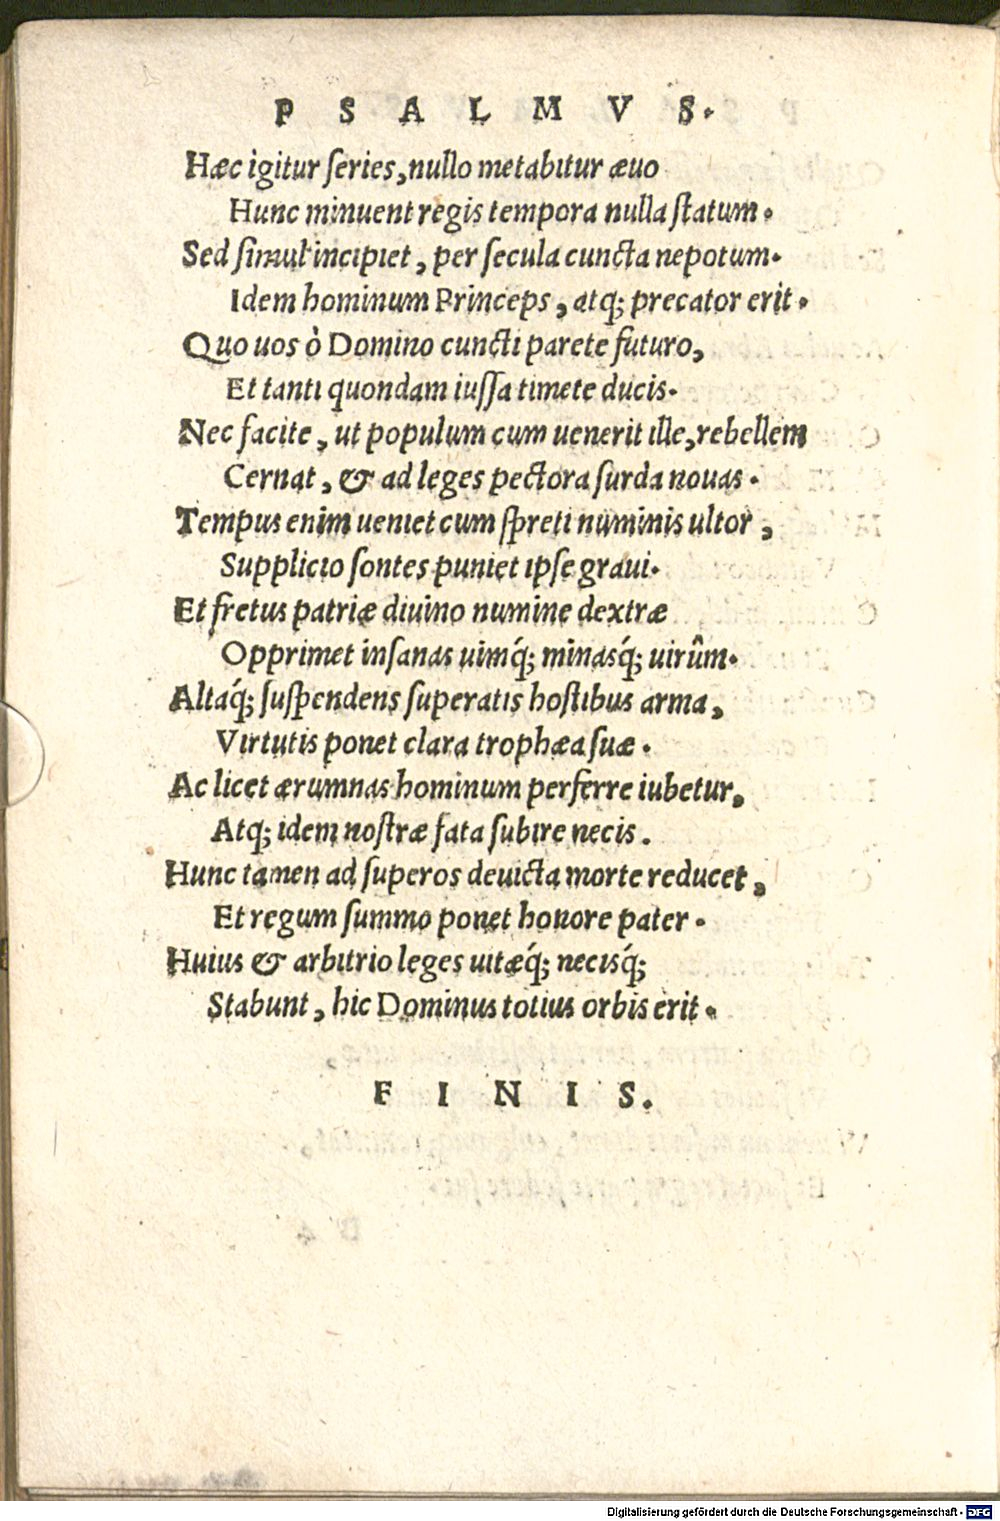 P S A L M V S.
Hæc igitur ſeries, nullo metabitur æuo
Hunc minuent regis tempora nulla ſtatum.
Sed ſimul incipiet, per ſecula cuncta nepotum.
Idem hominum Princeps, atq; precator erit.
Quo uos ò Domino cuncti parete futuro,
Et tanti quondam iuſſa timete ducis.
Nec facite, ut populum cum uenerit ille, rebellem
Cernat, & ad leges pectora ſurda nouas.
Tempus enim ueniet cum ſpreti numinis ultor,
Supplicio ſontes puniet ipſe graui.
Et fretus patriæ diuino numine dextræ
Opprimet inſanas uimq́; minasq́; uirûm.
Altaq́; ſuſpendens ſuperatis hoſtibus arma,
Virtutis ponet clara trophæa ſuæ.
Ac licet ærumnas hominum perferre iubetur,
Atq; idem noſtræ fata ſubire necis.
Hunc tamen ad ſuperos deuicta morte reducet,
Et regum ſummo ponet honore pater.
Huius & arbitrio leges uitæq́; necisq́;
Stabunt, hic Dominus totius orbis erit.
F I N I S.
Digitalisierung gefördert durch die Deutsche Forschungsgemeinschaft - DFG